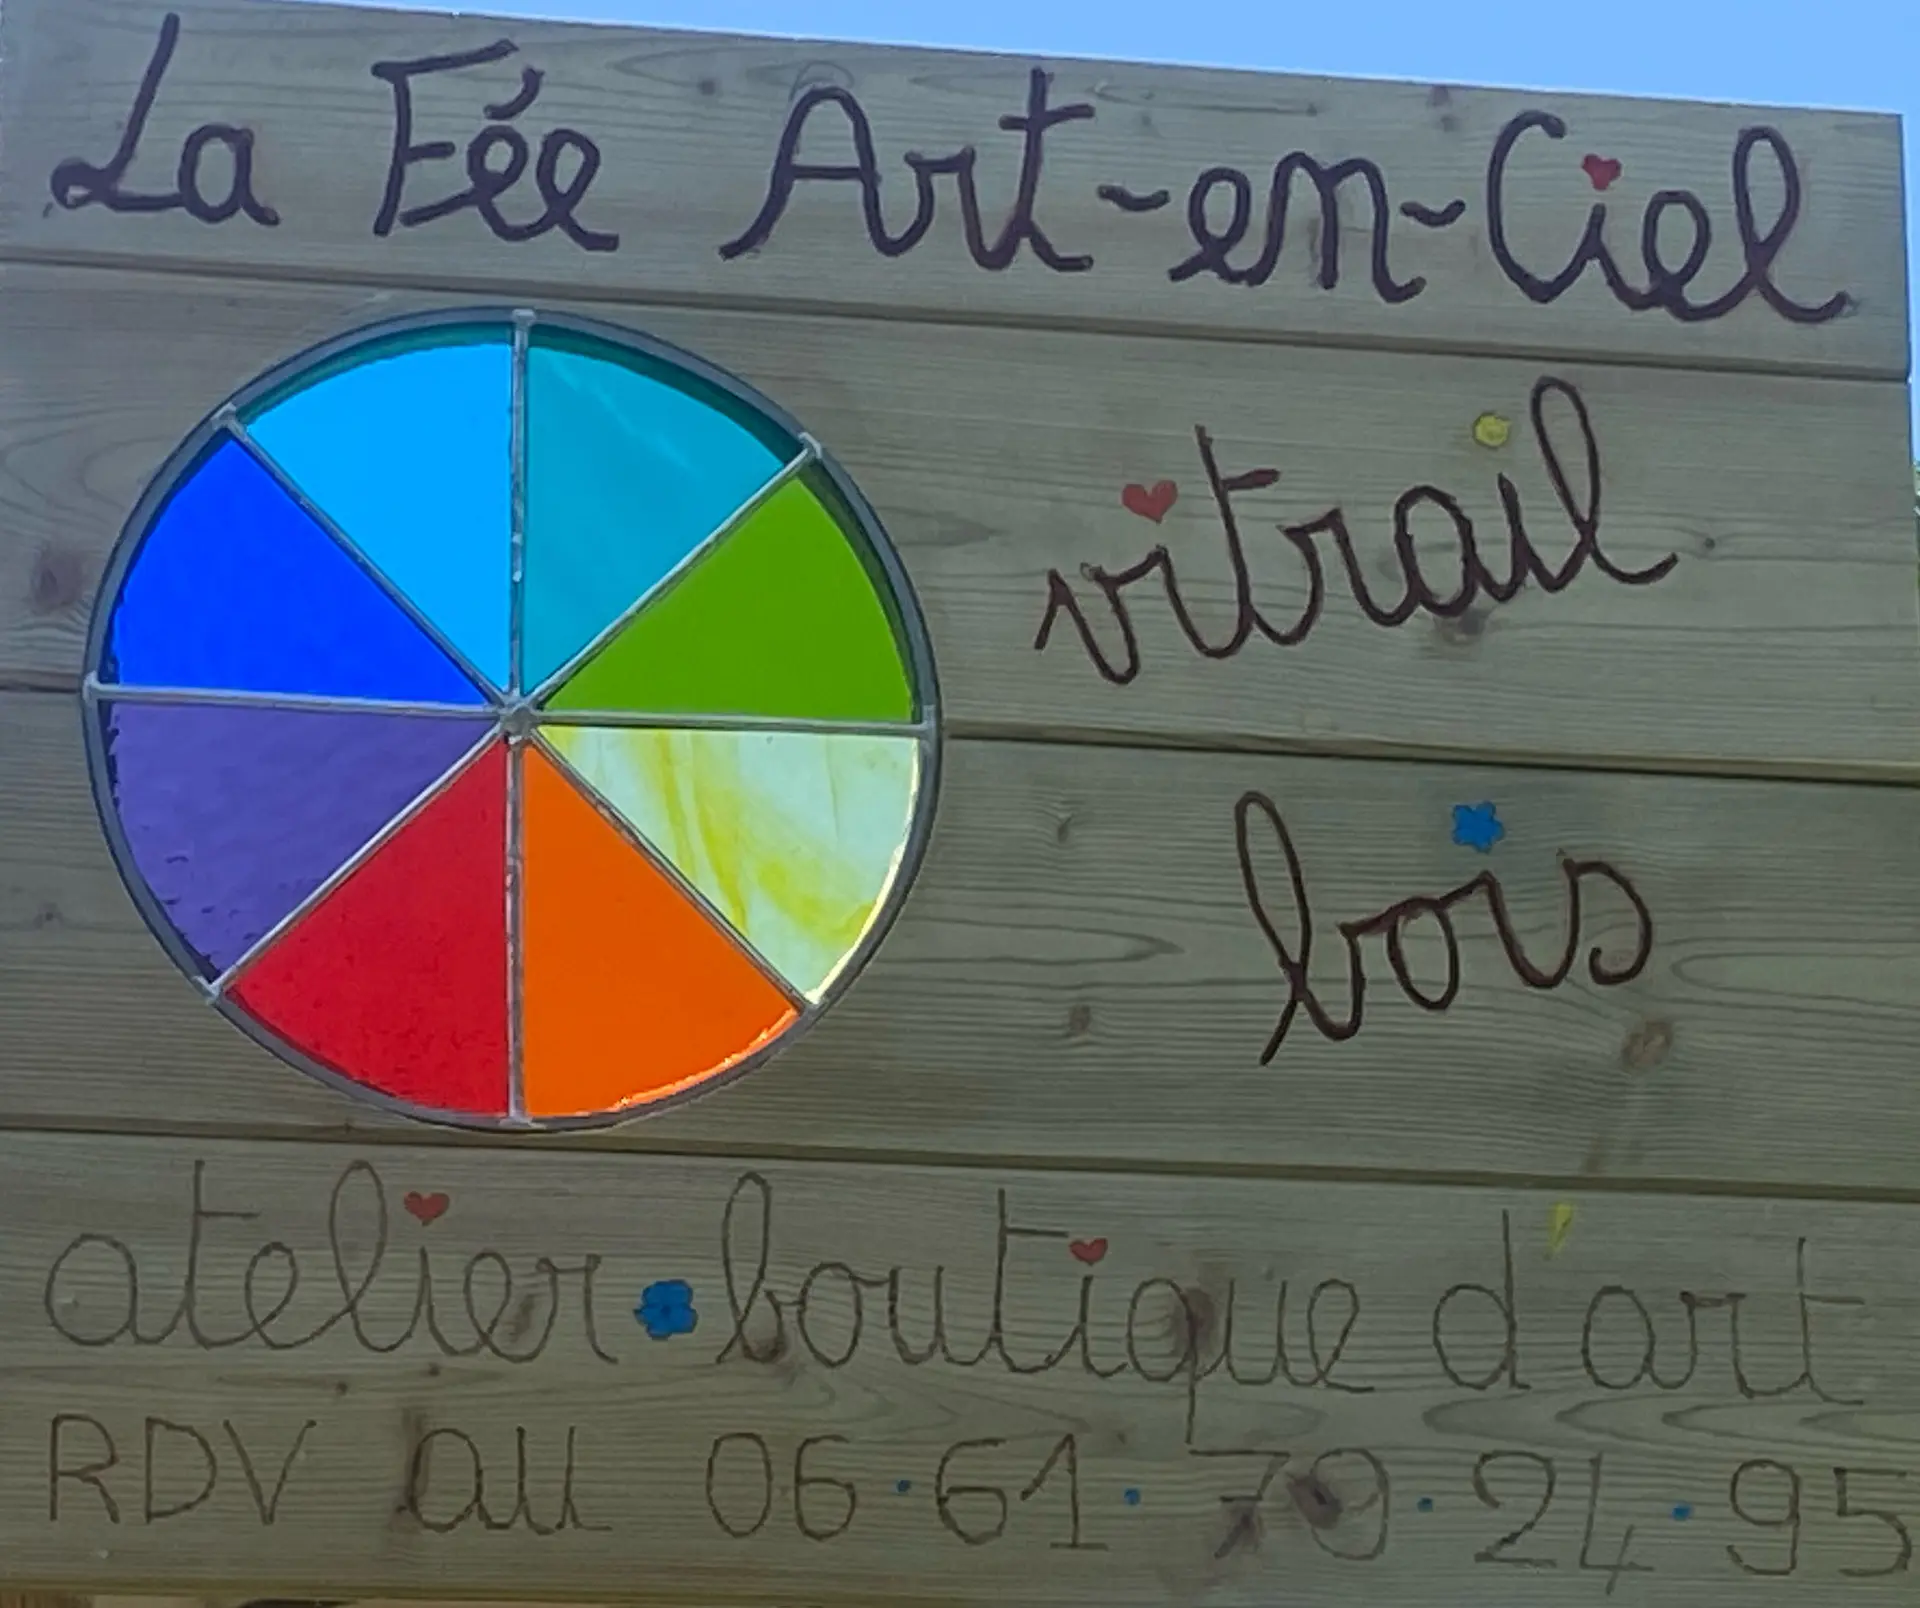 La Fée Art-en-Ciel
vitrail
bois
atelier boutique d'art
RDV au 06.61.79.24.95